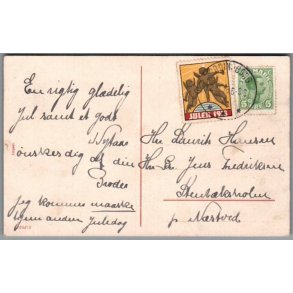 En rigtig glædelig
Jul samt et godt
Nytaar
ønskes dig af din
Broder
Jeg kommer maaske
hjem anden Juledag
JULEN 1913
DANMARK
5 5
Hr. Hansen
Hr. Jens Frederiksen
Stenbæksholm
pr. Næstved